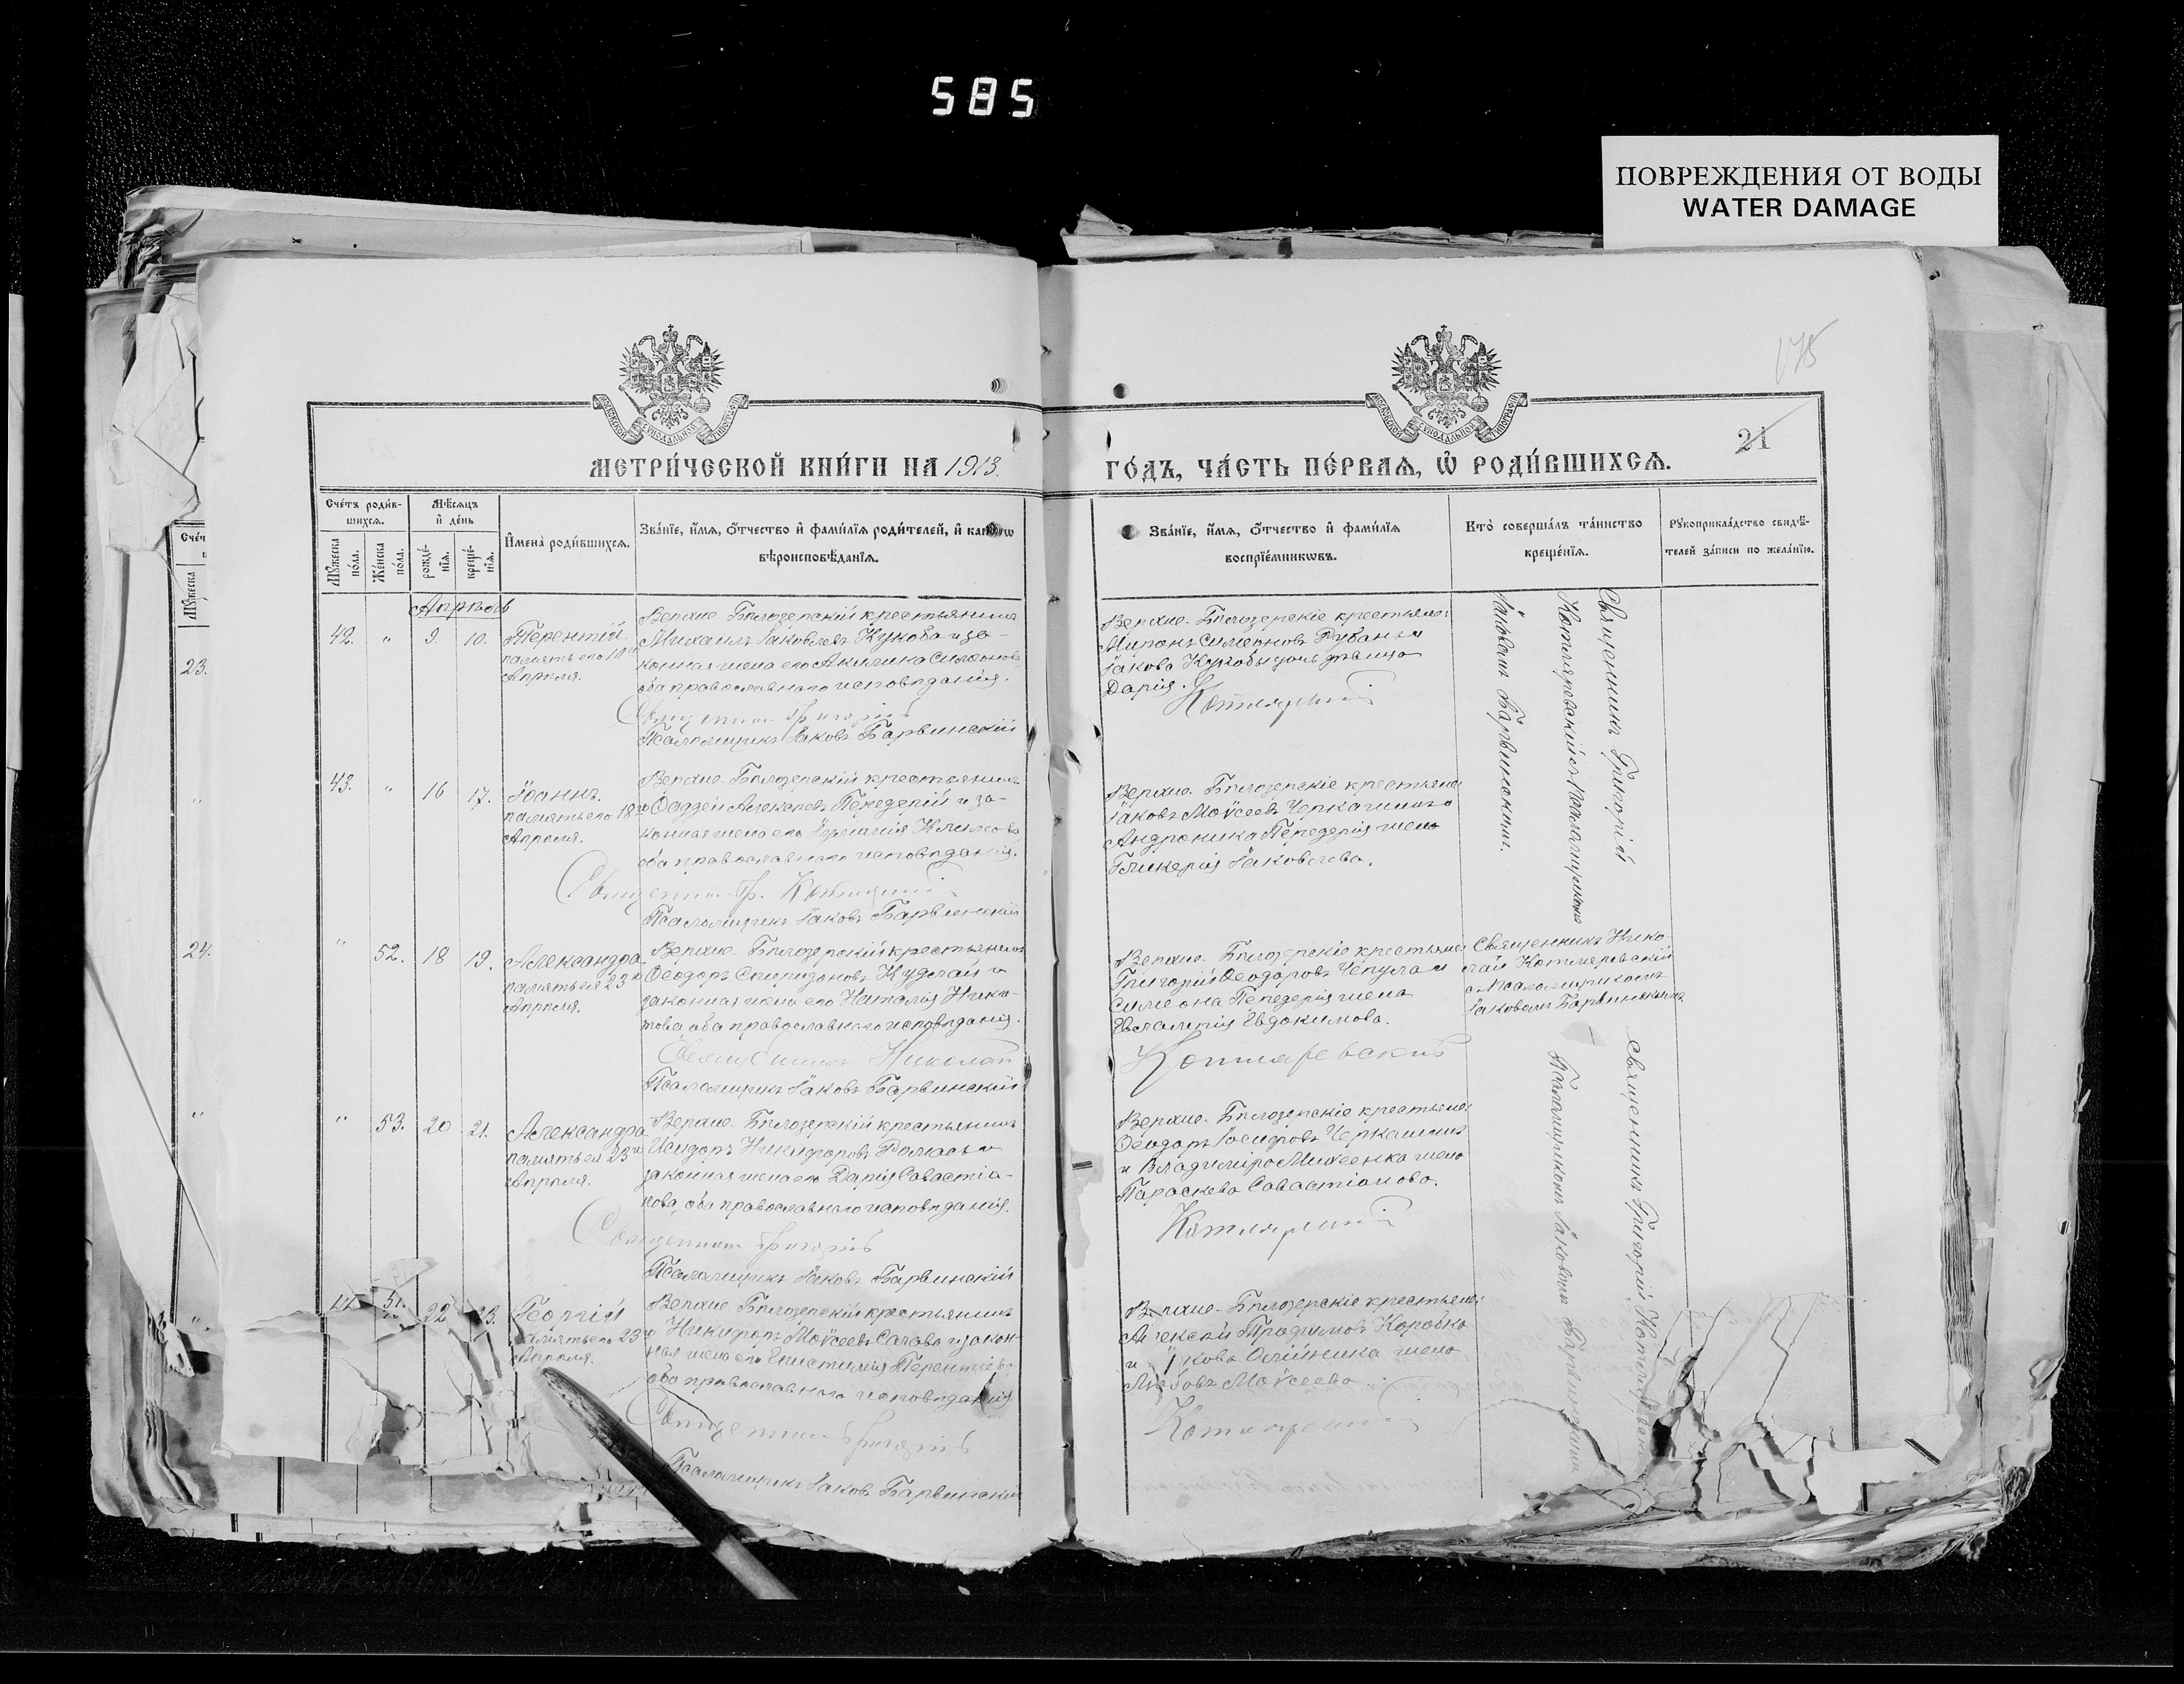 585
ПОВРЕЖДЕНИЯ ОТ ВОДЫ
WATER DAMAGE
175
21
МЕТРИ́ЧЕСКОЙ КНИ́ГИ НА 1913.
ГО́ДЪ, ЧА́СТЬ ПЕ́РВАѦ, Ѡ҆ РОДИ́ВШИХСѦ.
Сче́тъ роди́в-
шихсѧ.
Мѣ́сѧцъ
и҆ де́нь
Мꙋ́жеска по́ла.
Же́нска по́ла.
рожде́-нїѧ.
креще́-нїѧ.
И҆мена̀ роди́вшихсѧ.
Зва́нїе, и҆́мѧ, ѻ҆́тчество и҆ фами́лїѧ роди́телей, и҆
вѣроисповѣ́данїѧ.
Зва́нїе, и҆́мѧ, ѻ҆́тчество и҆ фами́лїѧ
воспрїе́мникѡвъ.
Кто̀ соверша́лъ та́инство
креще́нїѧ.
Рꙋкоприкла́дство свидѣ́-
телей за́писи по жела́нїю.
Апрѣль
42. " 9 10. Терентій
память его 10го
Апрѣля.
Верхне-Бѣлозерскій крестьянинъ
Михаилъ Іаковлевъ Кукоба и за-
конная жена его Акилина Симеонова
оба православнаго исповѣданія.
Священникъ Григорій
Псаломщикъ Іаковъ Барвинскій
Верхне-Бѣлозерскіе крестьяне:
Миронъ Симеоновъ Рубанъ и
Іакова Кукобы дочь дѣвица
Дарія.
Котляревскій
Священникъ Григорій
Котляревскій съ псаломщикомъ
Іаковомъ Барвинскимъ.
43. " 16 17. Іоаннъ.
память его 18го
Апрѣля.
Верхне-Бѣлозерскій крестьянинъ
Ѳаддей Алексеевъ Передерій и за-
конная жена его Климова
оба православнаго исповѣданія.
Священникъ Гр. Котляревскій
Псаломщикъ Іаковъ Барвинскій
Верхне-Бѣлозерскіе крестьяне
Іаковъ Моѵсеевъ Черкашинъ и
Андроника Передерія жена
Гликерія Іаковлева.
" 52. 18 19. Александра
память ея 23го
Апрѣля.
Верхне-Бѣлозерскій крестьянинъ
Ѳеодоръ Спиридоновъ Куделай и
законная жена его Наталія Ники-
това, оба православнаго исповѣданія.
Священникъ Николай
Псаломщикъ Іаковъ Барвинскій
Верхне-Бѣлозерскіе крестьяне:
Григорій Ѳеодоровъ Чепула и
Симеона Передерія жена
Евлампія Евдокимова.
Котляревскій
Священникъ Нико-
лай Котляревскій
съ псаломщикомъ
Іаковомъ Барвинскимъ
" 53. 20 21. Александра
память ея 23го
Апрѣля.
Верхне-Бѣлозерскій крестьянинъ
Исидоръ Никифоровъ Ромасъ и
законная жена его Дарія Савастіа-
нова, оба православнаго исповѣданія.
Священникъ Григорій
Псаломщикъ Іаковъ Барвинскій
Верхне-Бѣлозерскіе крестьяне:
Ѳеодоръ Іосифовъ Черкашинъ
и Владиміра Михеенка жена
Параскева Савастіанова.
Котляревскій
Священникъ Григорій Котляревскій
Псаломщикомъ Іаковомъ Барвинскимъ
22 23. Георгій
память его 23го
Апрѣля.
Верхне-Бѣлозерскій крестьянинъ
Никифоръ Моѵсеевъ Сачава и закон-
ная жена его Епистимія Терентіева
оба православнаго исповѣданія
Священникъ Григорій
Псаломщикъ Іаковъ Барвинскій
Верхне-Бѣлозерскіе крестьяне:
Алексей Трофимовъ Коровка
и Іакова Олійника жена
Любовь Моѵсеева.
Котляревскій
23.
24.